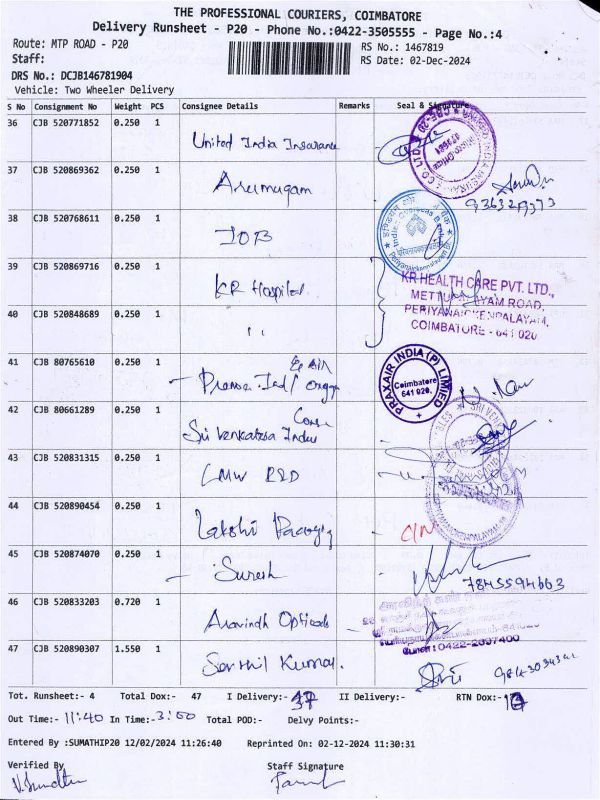 THE PROFESSIONAL COURIERS, COIMBATORE
Delivery Runsheet - P20 - Phone No.:0422-3505555 - Page No.:4
Route: MTP ROAD - P20 RS No.: 1467819
Staff: RS Date: 02-Dec-2024
DRS No.: DCJB146781904
Vehicle: Two Wheeler Delivery
S No Consignment No Weight PCS Consignee Details Remarks Seal & Signature
36 CJB 520771852 0.250 1 United India Insurance
37 CJB 520869362 0.250 1 Arumugam
38 CJB 520768611 0.250 1 IOB
39 CJB 520869716 0.250 1 KR Hospital
KR HEALTH CARE PVT. LTD.,
METTUPALAYAM ROAD,
PERIYANAICKENPALAYAM,
COIMBATORE - 641 020
40 CJB 520848689 0.250 1 ''
41 CJB 80765610 0.250 1
PRAXAIR INDIA (P) LIMITED
Coimbatore
641 020.
42 CJB 80661289 0.250 1 Sri Venkatesa
43 CJB 520831315 0.250 1 LMW R&D
44 CJB 520890454 0.250 1 Lakshi C/N
45 CJB 520874070 0.250 1 Suresh 7845594663
46 CJB 520833203 0.720 1 Aravindh Opticals
0422-2697400
47 CJB 520890307 1.550 1 Senthil Kumar.
Tot. Runsheet:- 4 Total Dox:- 47 I Delivery:- 37 II Delivery:- RTN Dox:- 10
Out Time:- 11:40 In Time:- 3:00 Total POD:- Delvy Points:-
Entered By :SUMATHIP20 12/02/2024 11:26:40 Reprinted On: 02-12-2024 11:30:31
Verified By Staff Signature